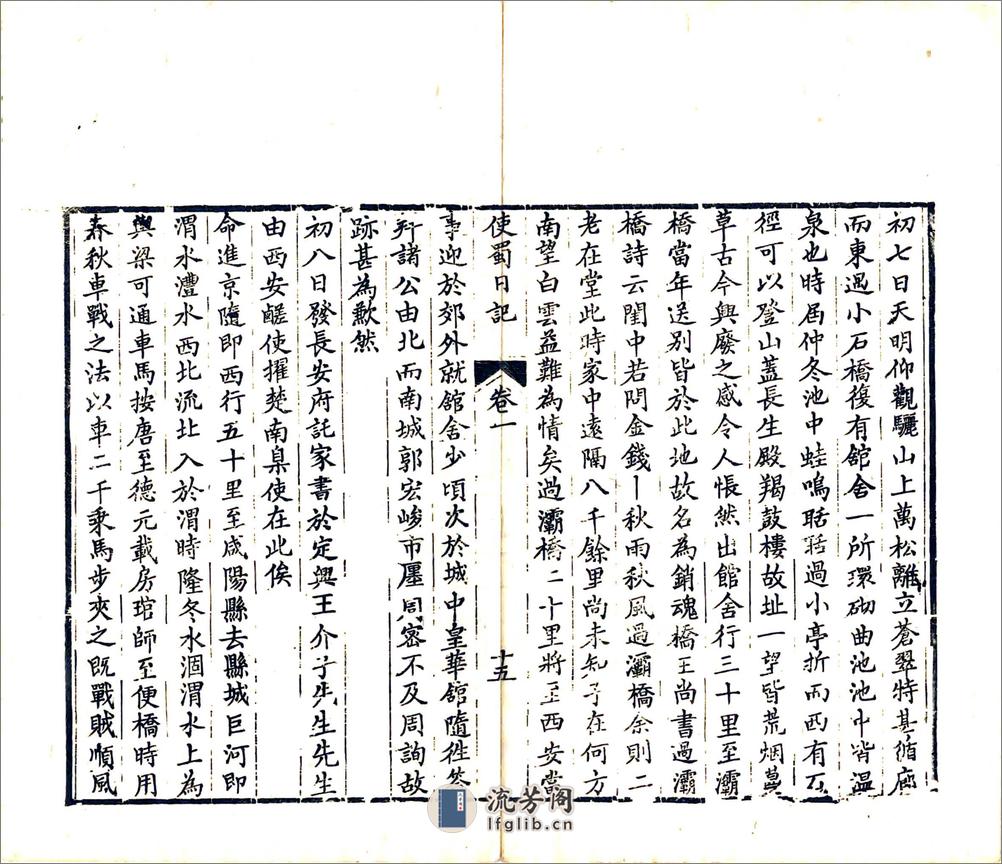 初七日天明仰觀驪山上萬松離立蒼翠特甚循廊
而東過小石橋復有館舍一所環砌曲池池中皆温
泉也時屆仲冬池中蛙鳴聒聒過小亭折而西有石
徑可以登山蓋長生殿羯鼓樓故址一望皆荒烟蔓
草古今興廢之感令人悵然出館舍行三十里至灞
橋當年送別皆於此地故名為銷魂橋王尚書過灞
橋詩云閨中若問金錢卜秋雨秋風過灞橋余則二
老在堂此時家中遠隔八千餘里尚未知予在何方
南望白雲益難為情矣過灞橋二十里將至西安當
使蜀日記
卷一
十五
事迎於郊外就館舍少頃次於城中皇華館隨往答
拜諸公由北而南城郭宏峻市廛周密不及周詢故
跡甚為歉然
初八日發長安府託家書於定興王介子先生先生
由西安鹺使擢楚南臬使在此俟
命進京隨即西行五十里至咸陽縣去縣城巨河即
渭水灃水西北流北入於渭時隆冬水涸渭水上為
輿梁可通車馬按唐至德元載房琯師至便橋時用
春秋車戰之法以車二千乘馬步夾之既戰賊順風
流芳阁
lfglib.cn